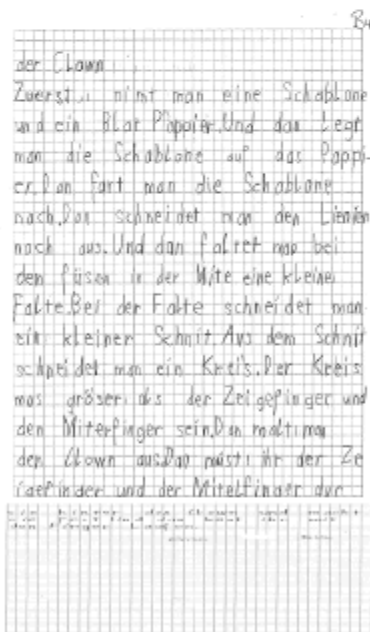 der Clown
Zuerst nimt man eine Schablone
und ein Blat Pappier. Und dan legt
man die Schablone auf das Pappi-
er. Dan fart man die Schablone
nach. Dan schneidet man den Lienien
nach aus. Und dan faltet man bei
den füsen in der Mite eine kleine
Falte. Bei der Falte schneidet man
ein kleiner Schnit. Aus dem Schnit
schneidet man ein Kreis. Der Kreis
mus gröser als der Zeigefinger und
den Mittelfinger sein. Dan malt man
den Clown aus. Dan müst ihr der Ze
igefinder und der Mitelfinger dur